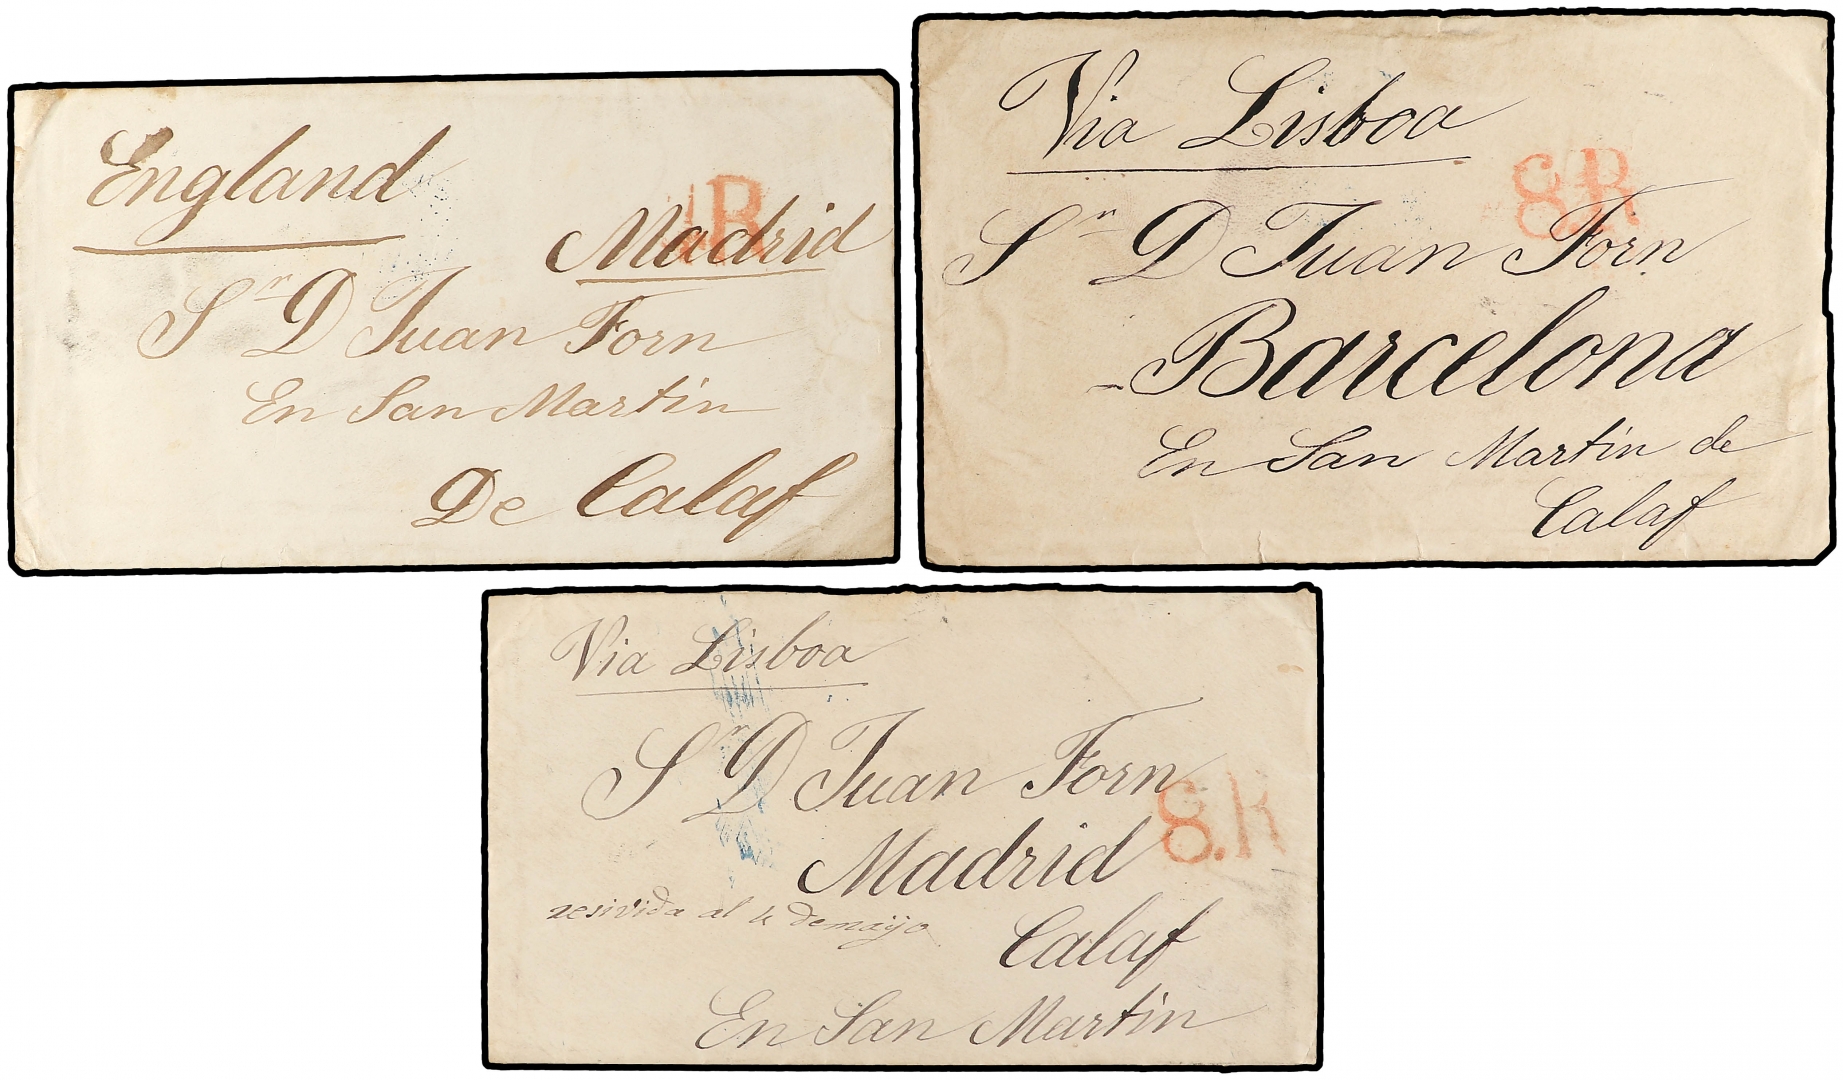 England
Madrid
Sr D Juan Forn
En San Martin
De Calaf
Via Lisboa
8R
Sr D Juan Forn
Barcelona
En San Martin de
Calaf
Via Lisboa
Sr D Juan Forn
8.R
Madrid
resivida al 4 de mayo
Calaf
En San Martin